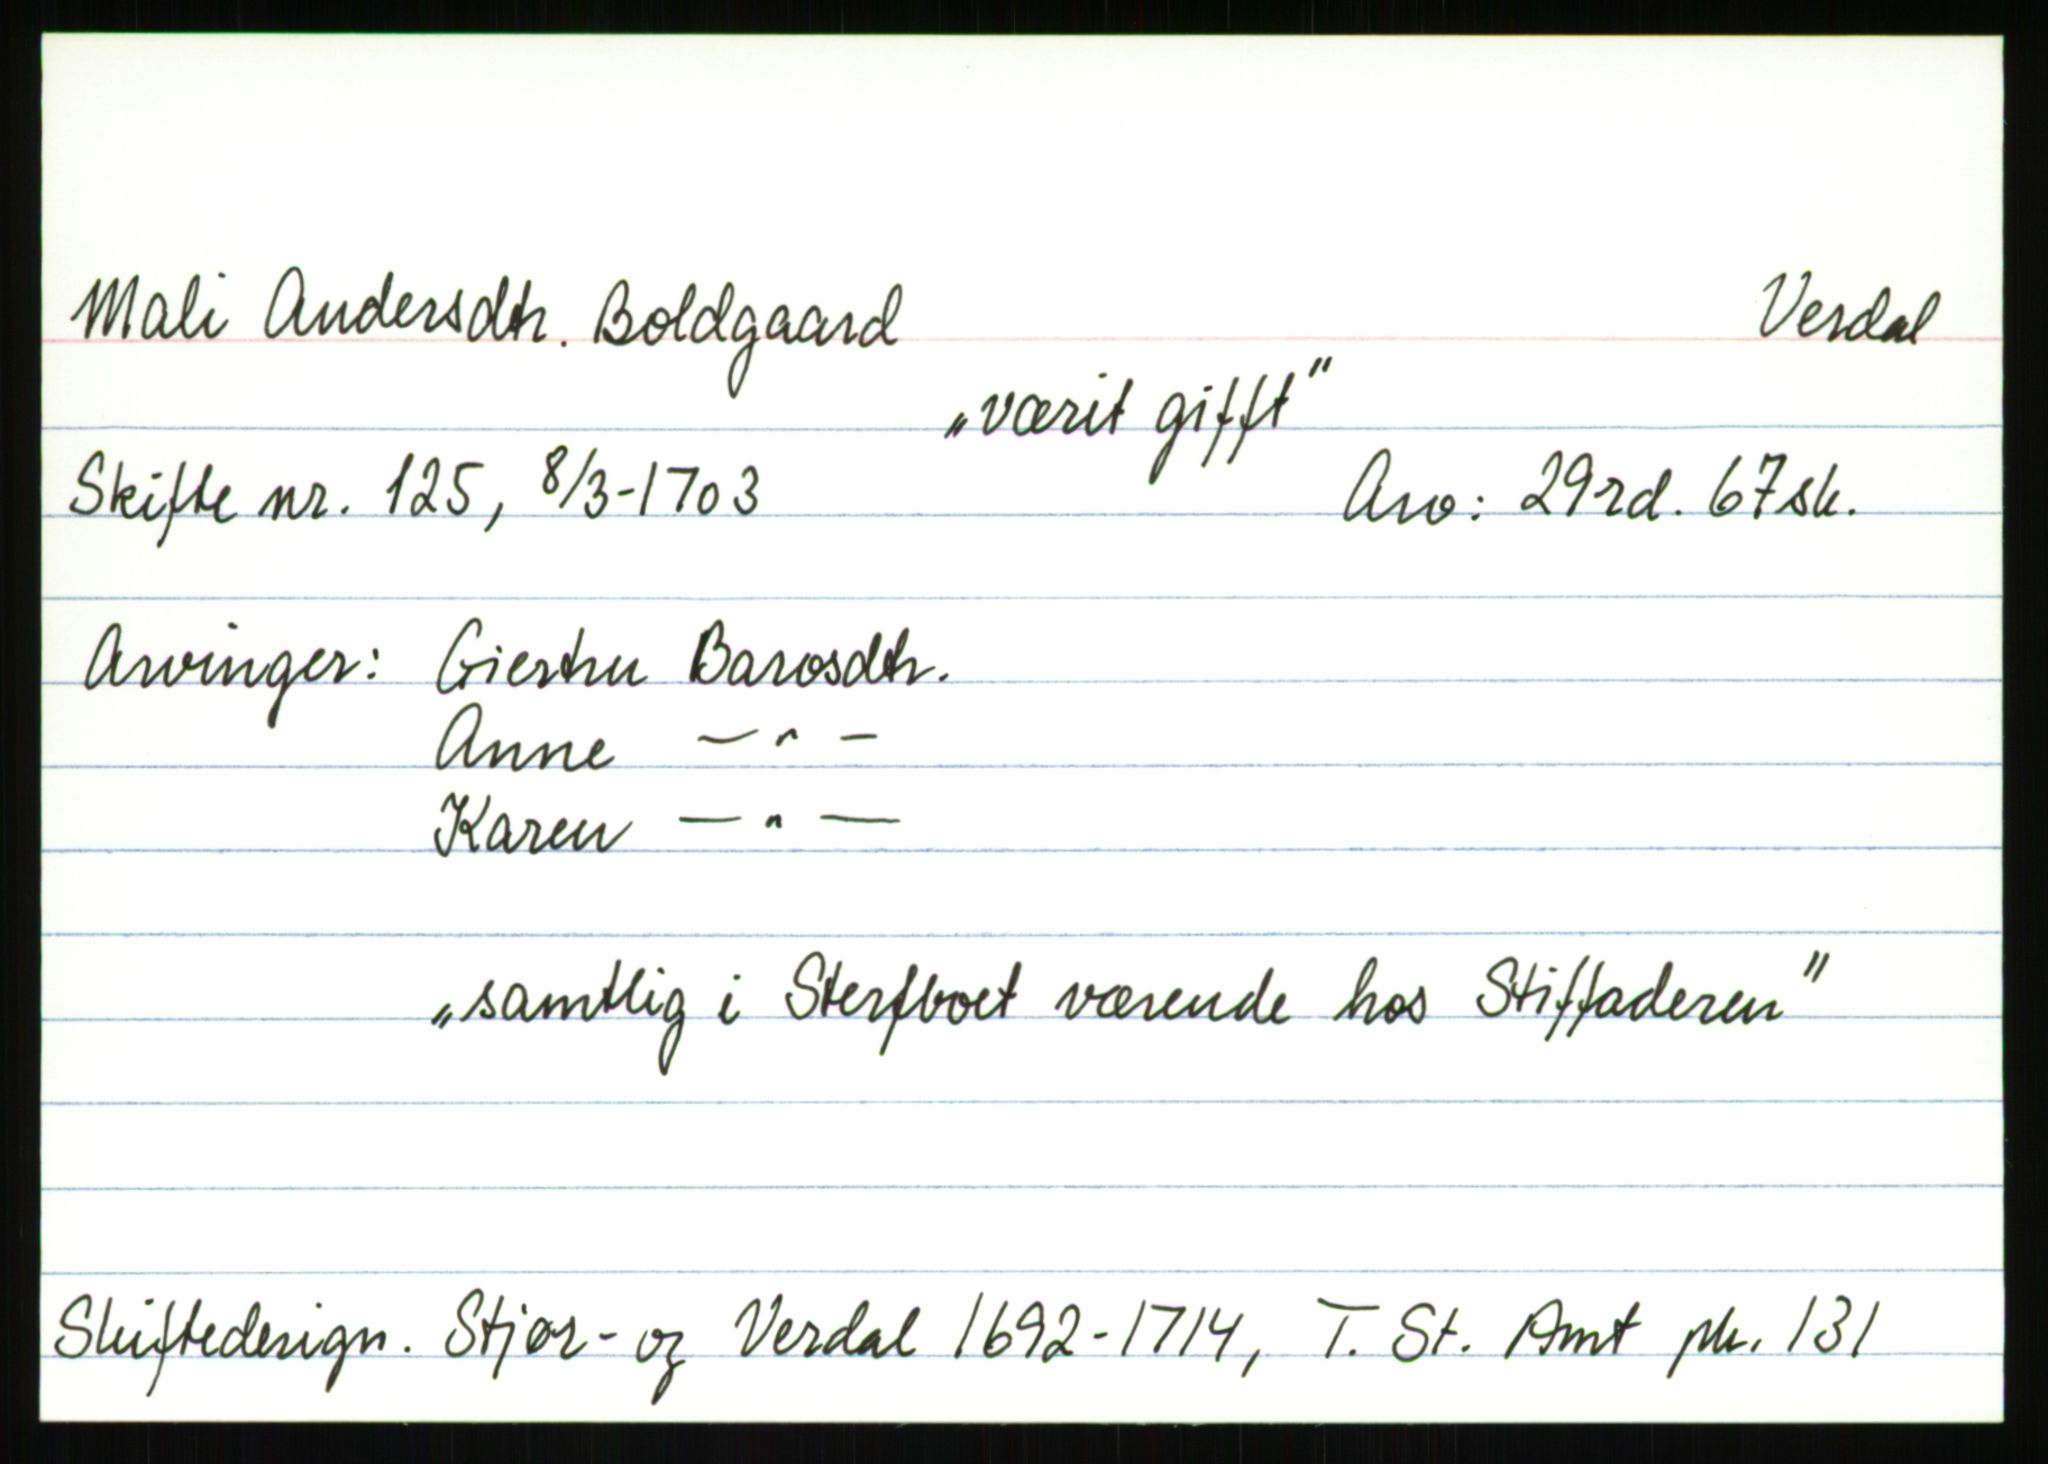 Mali Andersdtr. Boldgaard Verdal
„værit gifft"
Skifte nr. 125, 8/3-1703 Arv: 29rd. 67sk.
Arvinger: Giertru Barosdtr.
Anne —"—
Karen —"—
„samtlig i Sterfboet værende hos Stiffaderen"
Skiftedesign. Stjør- og Verdal 1692-1714, T. St. Amt pk. 131